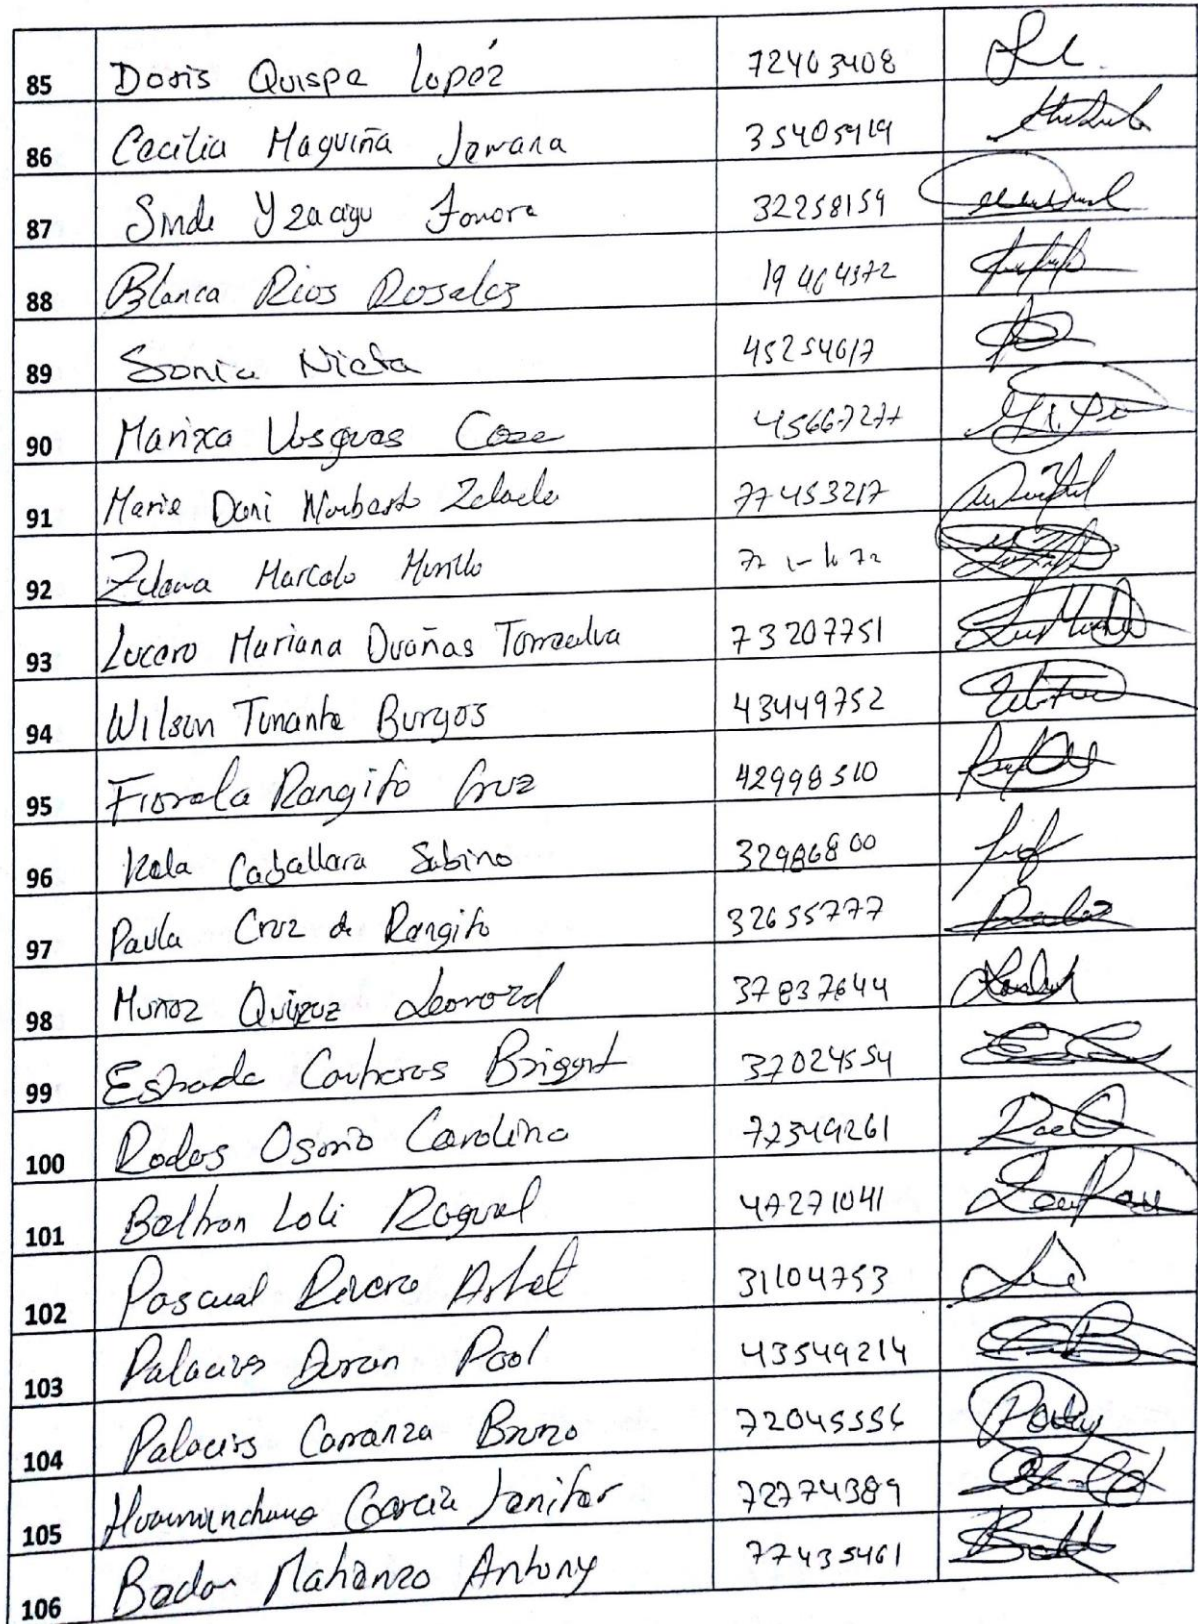 85 Doris Quispe Lopéz 72463408
86 Cecilia Maguiña Jamana 35405919
87 32258159
88 Blanca Rios Rosales 19464372
89 Sonia Nieta 45254617
90 Marixa Vasques 45667277
91 Maria Doni Norberto 77453217
92 Marcelo Murillo
93 Lucero Mariana Dueñas Torrealva 73207751
94 Wilson Tinante Burgos 43449752
95 Fiorela Rangifo Cruz 42998510
96 Caballara Sabino 32986800
97 Paula Cruz de Rengifo 32655777
98 Muñoz Quiroz Leonord 37837644
99 Estrada Contreras 37024554
100 Rodas Osorio Carolina 77349261
101 Beltron Loli Raquel 47271041
102 Pascual Rivera 31104753
103 Palacios Duran Pool 43549214
104 Palacios Carranza Bruno 72045556
105 Garcia Jenifer 72774389
106 Antony 77435461